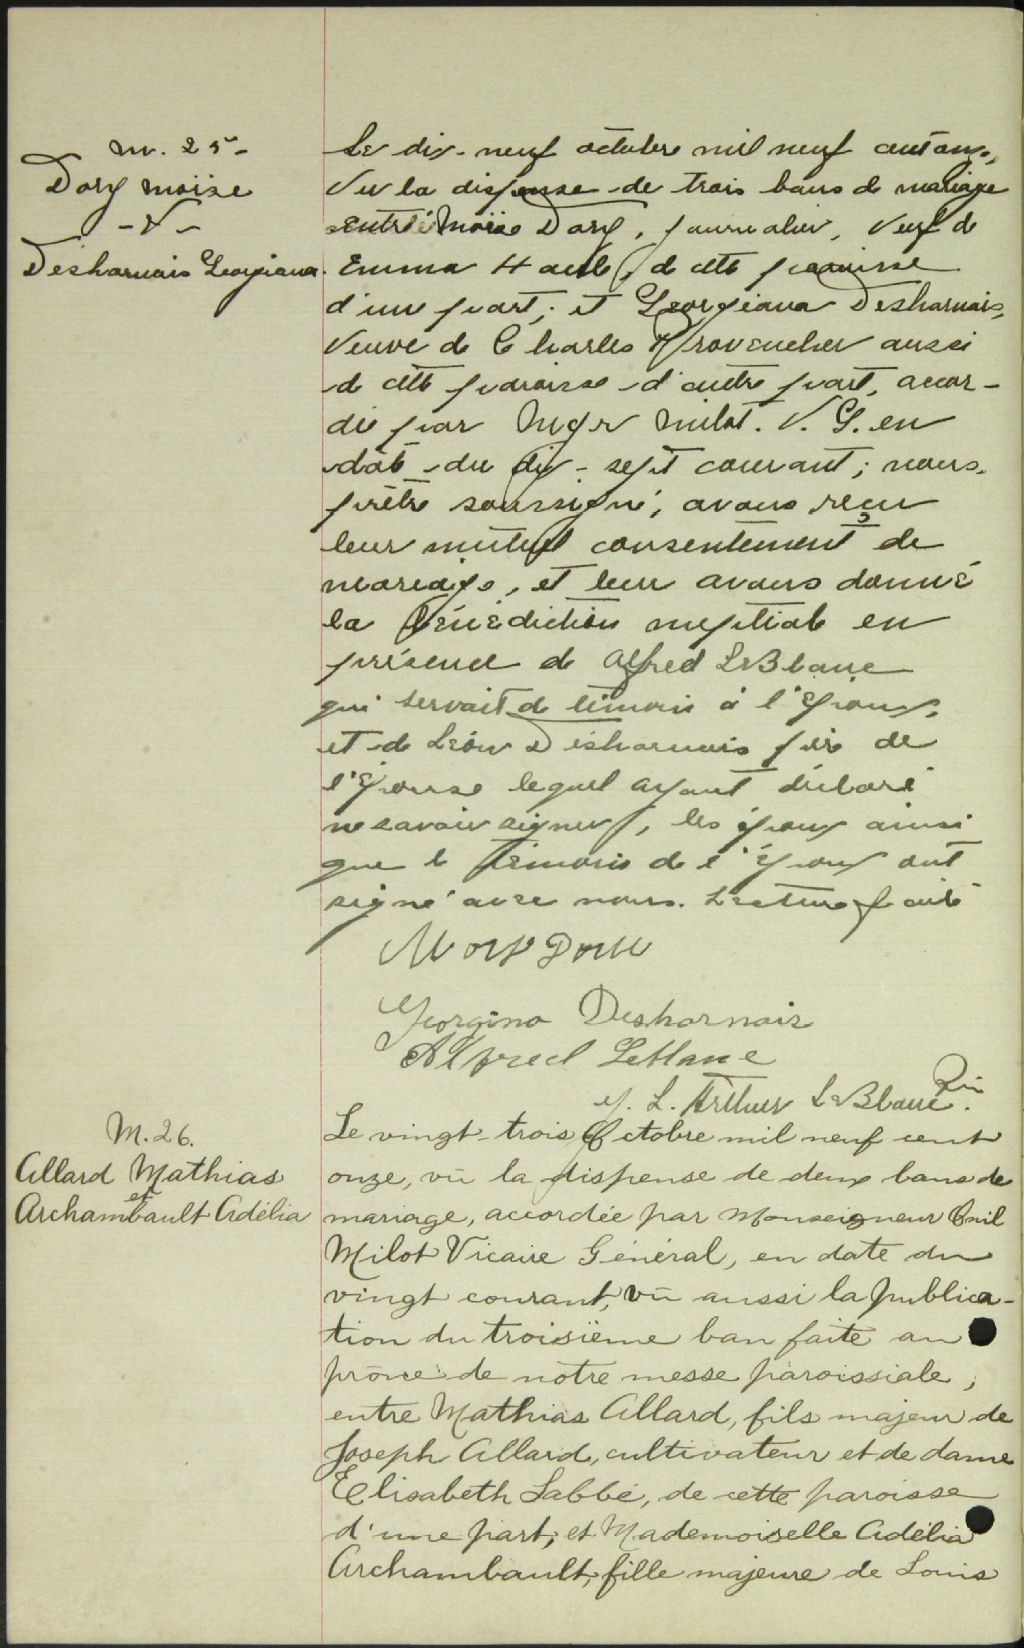 M. 25-
Dory Moïse
- & -
Desharnais Georgiana.
Le dix-neuf octobre mil neuf cent onze,
Vu la dispense de trois bans de mariage
entre Moïse Dory, journalier, veuf de
Emma Haule, de cette paroisse
d'une part; et Georgiana Desharnais,
Veuve de Charles Provencher aussi
de cette paroisse d'autre part, accor-
dée par Mgr Milot. V. G. en
date du dix-sept courant; nous,
prêtre soussigné, avons reçu
leur mutuel consentement de
mariage, et leur avons donné
la bénédiction nuptiale en
présence de Alfred LeBlanc
qui servait de témoin à l'époux,
et de Léon Desharnais père de
l'épouse lequel ayant déclaré
ne savoir signer, les époux ainsi
que le témoin de l'époux ont
signé avec nous. Lecture faite
Georgina Desharnais
Alfred Leblanc
J. L. Arthur LeBlanc. Ptre
M. 26.
Allard Mathias
et
Archambault Adélia
Le vingt-trois Octobre mil neuf cent
onze, vu la dispense de deux bans de
mariage, accordée par Monseigneur
Milot Vicaire Général, en date du
vingt courant, vu aussi la publica-
tion du troisième ban faite au
prône de notre messe paroissiale,
entre Mathias Allard, fils majeur de
Joseph Allard, cultivateur et de dame
Elisabeth Labbé, de cette paroisse
d'une part; et Mademoiselle Adélia
Archambault, fille majeure de Louis